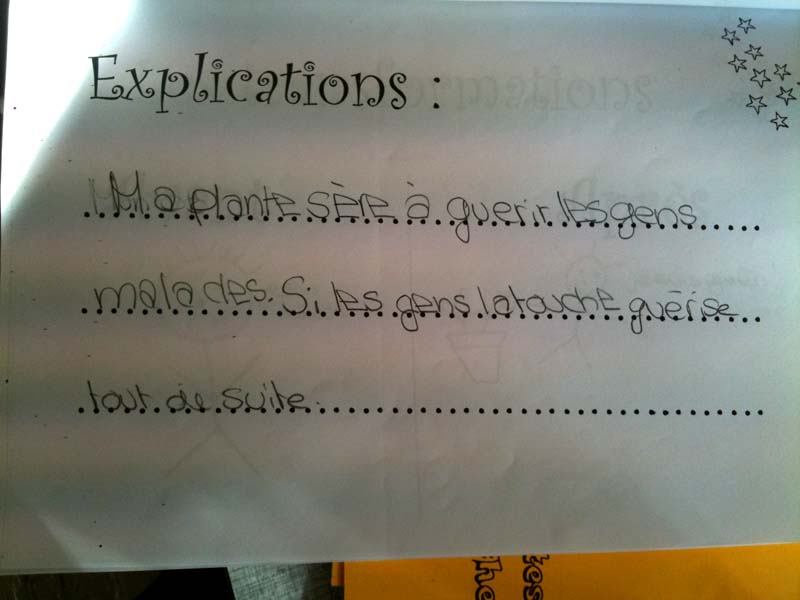 Explications :
Ma plante sère à guerir les gens
malades. Si les gens la touche guérise
tout de suite.